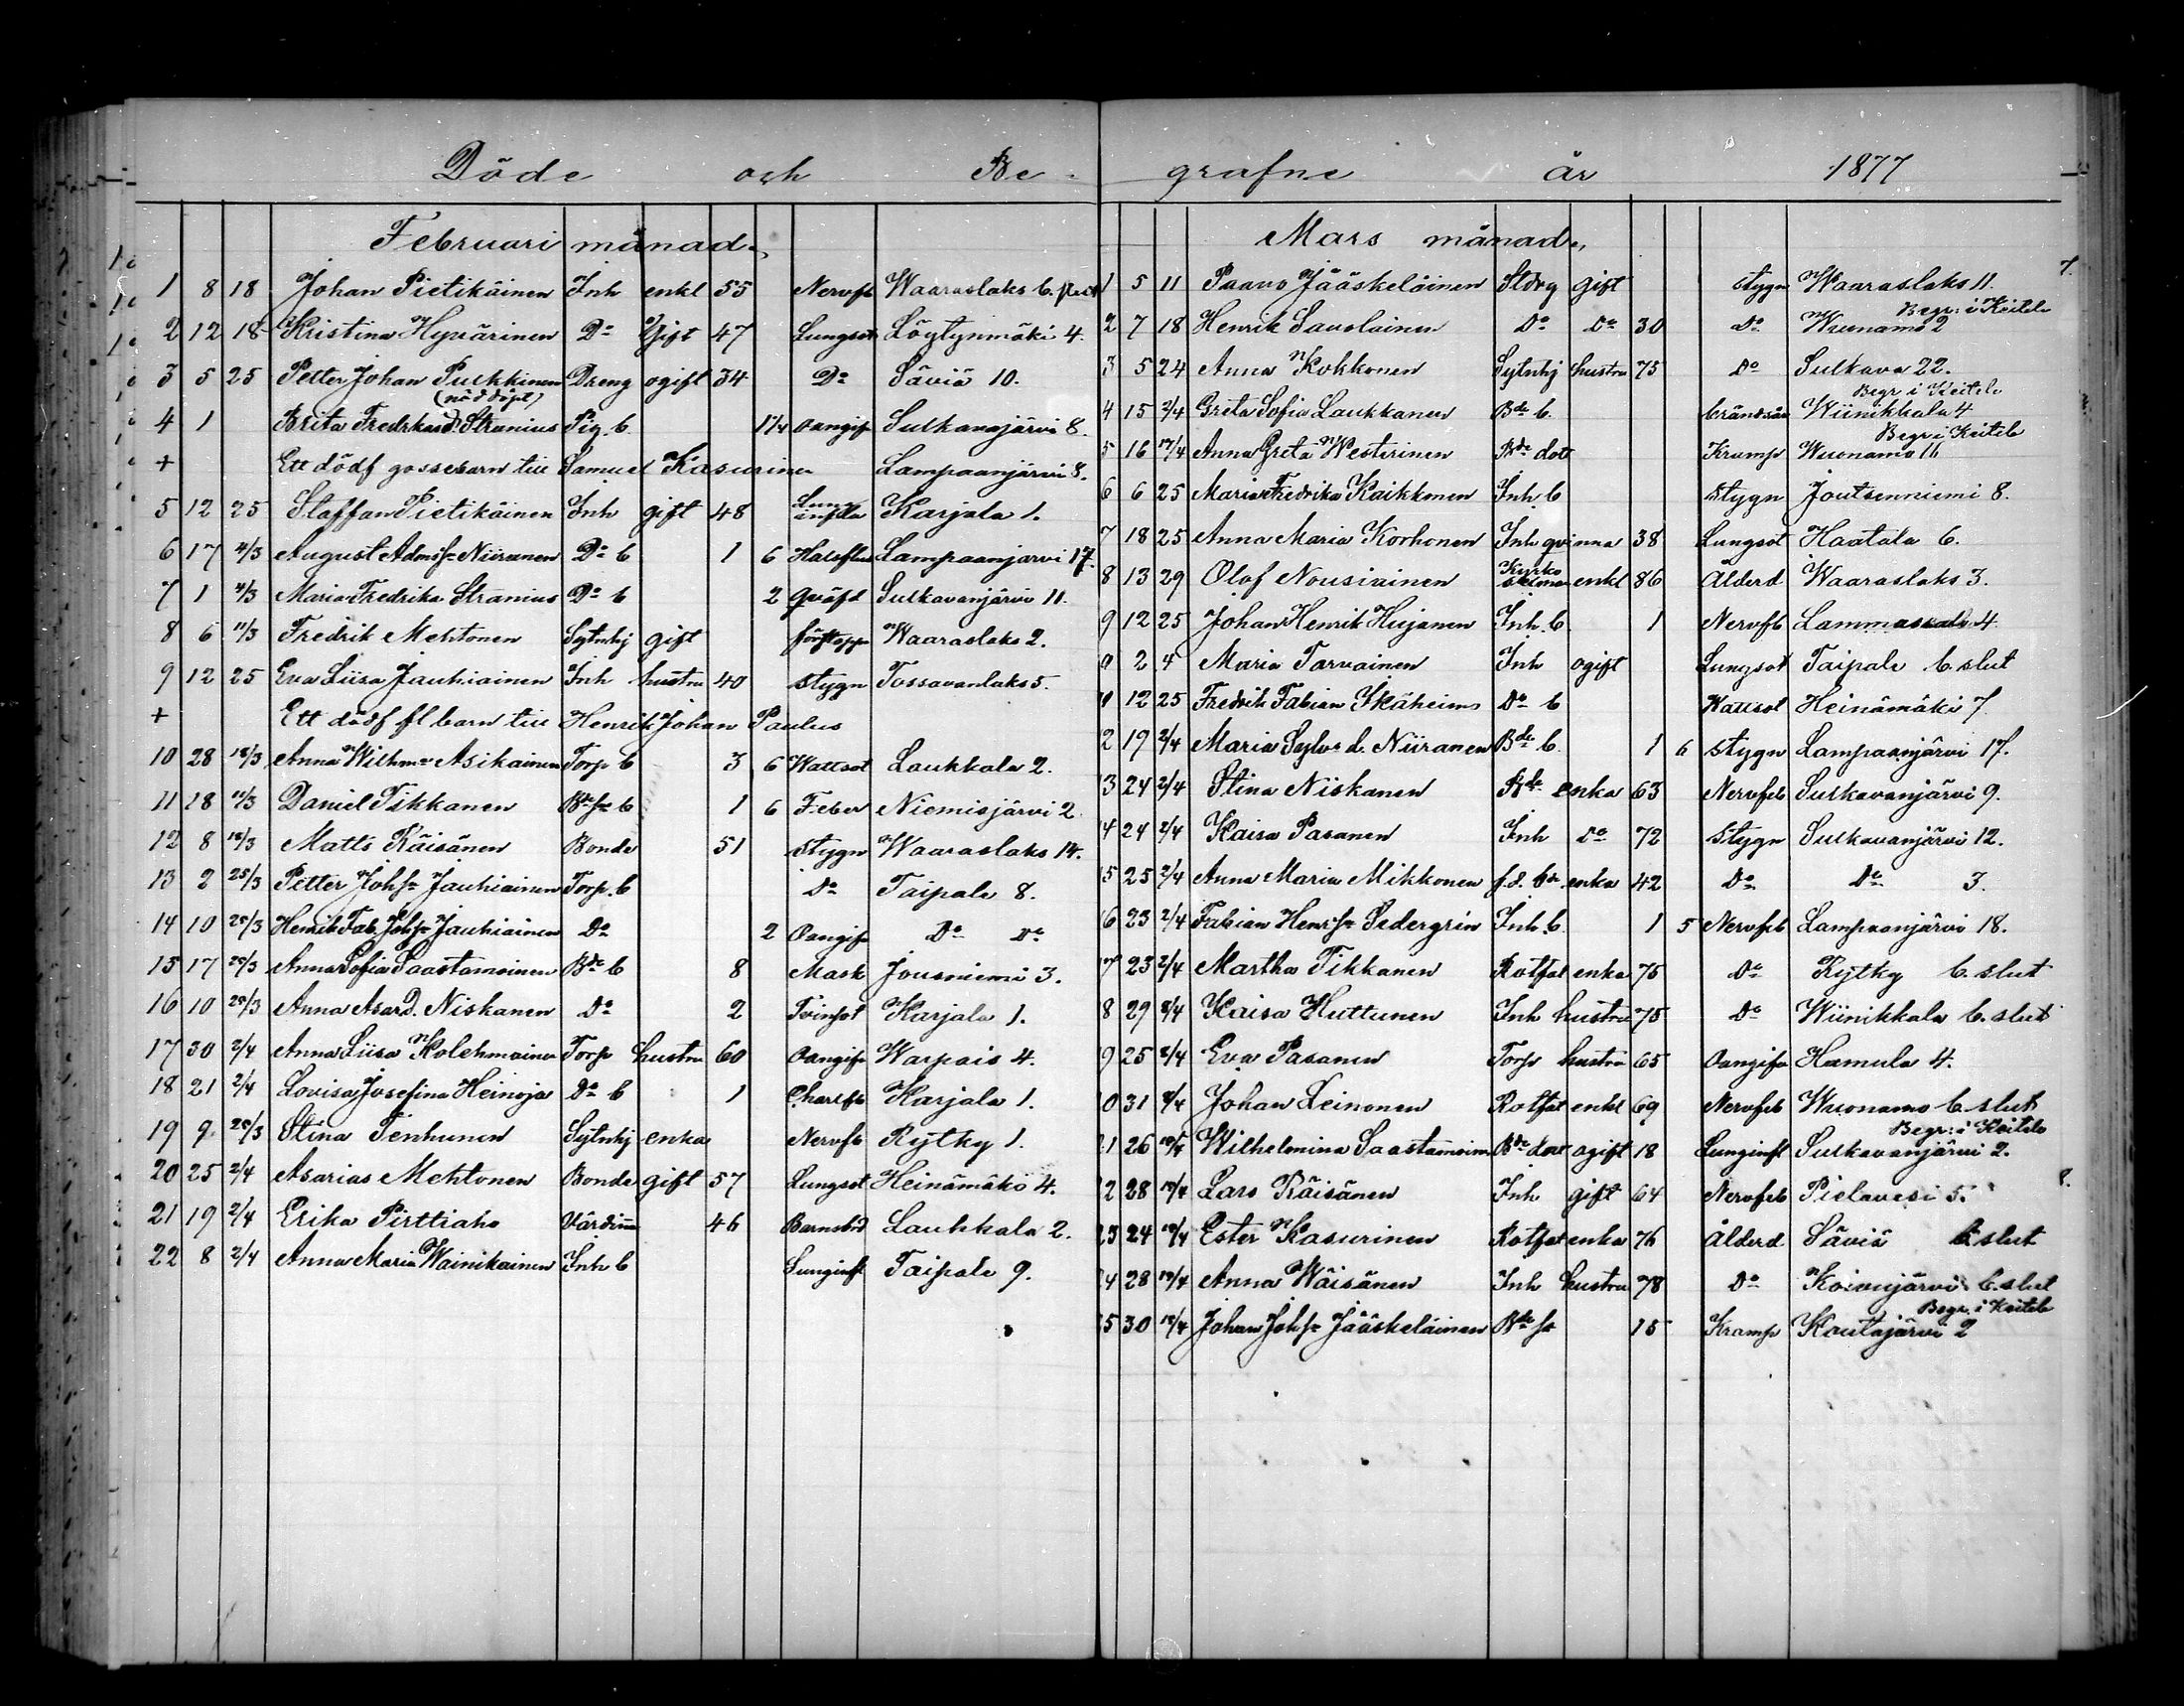 Döde och Be-
Februari månad.
1 8 18 Johan Pietikäinen Inh enkl 55 Nervfb Waaraslaks b.
2 12 18 Kristina Hyvärinen Do Gift 47 Lungsot Löytynmäki 4.
3 5 25 Petter Johan Pulkkinen Dreng ogift 34 Do Säviä 10.
(nöddöpt)
4 1 Brita Fredrika d. Stranius Pig. b. 1/4 oangif Sulkavajärvi 8.
+ Ett dödf gossebarn till Samuel Kasurinen Lampaanjärvi 8.
5 12 25 Staffan Pietikäinen Inh gift 48 Lung infla Karjala 1.
6 17 4/3 August Admss Niiranen Do b 1 6 Halsflus Lampaanjärvi 17.
7 1 4/3 Maria Fredrika Stranius Do b 2 Qväfd Sulkavanjärvi 11.
8 6 11/3 Fredrik Mehtonen Sytnhj gift förstopp Waaraslaks 2.
9 12 25 Eva Liisa Jauhiainen Inh hustru 40 stygn Tossavanlaks 5.
+ Ett dödf fl barn till Henrik Johan Paulus
10 28 18/3 Anna Wilhma Asikainen Torp b 3 6 Wattsot Laukkala 2.
11 18 11/3 Daniel Tikkanen Bdess b 1 6 Feber Niemisjärvi 2.
12 8 18/3 Matts Räisänen Bonde 51 stygn Waaraslaks 14.
13 2 25/3 Petter Johss Jauhiainen Torp. b Do Taipale 8.
14 10 25/3 Henrik Fab. Johss Jauhiainen Do 2 Oangif Do Do
15 17 25/3 Anna Sofia Saastamoinen Bde b 8 Mask Jousniemi 3.
16 10 25/3 Anna Asar d. Niskanen Do 2 Tvinsot Karjala 1.
17 30 2/4 Anna Liisa Kolehmainen Torp hustru 60 Oangif Warpais 4.
18 21 2/4 Lovisa Josefina Heinoja Do b 1 Charlfb Karjala 1.
19 9 25/3 Stina Tenhunen Sytnhj enka Nervfb Rytky 1.
20 25 2/4 Asarias Mehtonen Bonde gift 57 Lungsot Heinämäki 4.
21 19 2/4 Erika Pirttiaho Värdinn 46 Barnsbd Laukkala 2.
22 8 2/4 Anna Maria Wainikainen Inh b Lunginfl Taipale 9.
grafne år 1877
Mars månad.
7.
1 5 11 Paavo Jääskeläinen Stdrg gift stygn Waaraslaks 11.
Begr. i Keitele
2 7 18 Henrik Savolainen Do Do 30 Do Wuonamo 2
3 5 24 Anna Kokkonen Sytnhj hustru 75 Do Sulkava 22.
Begr i Keitele
4 15 2/4 Greta Sofia Laukkanen Bde b. brändsår Wiinikkala 4
Begr i Keitele
5 16 17/4 Anna Greta Westerinen Bde dot Kramp Wuonamo 11
6 6 25 Maria Fredrika Kaikkonen Inh. b stygn Joutsenniemi 8.
7 18 25 Anna Maria Korhonen Inh qvinna 38 Lungsot Haatala 6.
8 13 29 Olof Nousiainen Kyrko enkl 86 Ålderd Waaraslaks 3.
9 12 25 Johan Henrik Hujanen Inh. b 1 Nervfb Lammassalo 4
0 2 4 Maria Tarvainen Inh ogift Lungsot Taipale b. slut
12 25 Fredrik Fabian Ikäheimo Do b Wattsot Heinämäki 7
2 19 2/4 Maria Sylvr d. Niiranen Bde b. 1 6 stygn Lampaanjärvi 17.
3 24 2/4 Stina Niskanen Bde enka 63 Nervfeb Sulkavanjärvi 9.
4 24 2/4 Kaisa Pasanen Inh Do 72 stygn Sulkavanjärvi 12.
5 25 2/4 Anna Maria Mikkonen f.d. bde enka 42 Do Do 3.
6 23 2/4 Fabian Henrss Sedergrén Inh. b. 1 5 Nervfeb Lampaanjärvi 18.
7 23 2/4 Martha Tikkanen Rotfat enka 75 Do Rytky b. slut
8 29 8/4 Kaisa Huttunen Inh hustru 75 Do Wiinikkala b. slut
9 25 8/4 Eva Pasanen Torp hustru 65 Oangifv Hamula 4.
0 31 8/4 Johan Leinonen Rotfat enkl 69 Nervfeb Wuonamo b slut
Begr. i Keitele
21 26 10/4 Wilhelmina Saastamoinen Bde dot ogift 18 Lunginfl Sulkavanjärvi 2.
8.
2 28 15/4 Lars Räisänen Inh gift 64 Nervfeb Pielavesi 5.
23 24 15/4 Ester Kasurinen Rotfat enka 76 Ålderd Säviä b slut
24 28 15/4 Anna Wäisänen Inh hustru 78 Do Koivujärvi b. slut
Begr. i Keitele
25 30 15/4 Johan Johss Jääskeläinen Bde ss 15 Kramp Koutajärvi 2